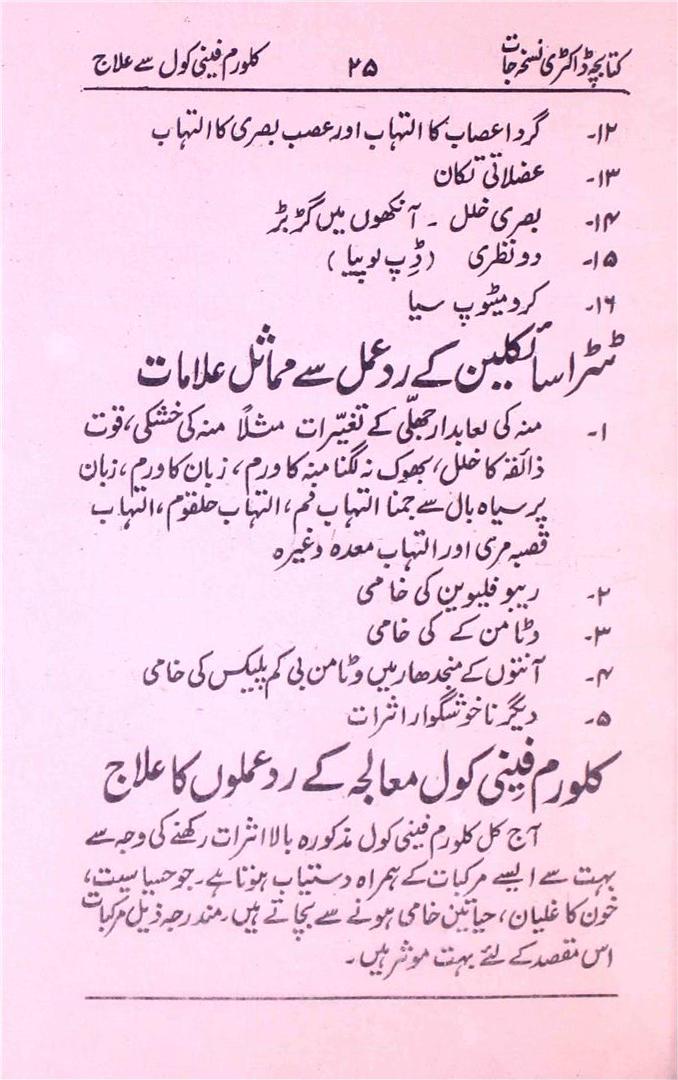 کتابچہ ڈاکٹری نسخہ جات ۲۵ کلورم فینی کول سے علاج
۱۲۔ گرد اعصاب کا التہاب اور عصب بصری کا التہاب
۱۳۔ عضلاتی تکان
۱۴۔ بصری خلل ۔ آنکھوں میں گڑبڑ
۱۵۔ دو نظری (ڈِپ لوپیا)
۱۶۔ کرومیٹوپ سیا
ٹٹراسائکلین کے ردعمل سے مماثل علامات
۱۔ منہ کی لعابدار جھلّی کے تغیّرات مثلاً منہ کی خشکی، قوت
ذائقہ کا خلل، بھوک نہ لگنا منہ کا ورم، زبان کا ورم، زبان
پر سیاہ بال سے جمنا التہاب فم، التہاب حلقوم، التہاب
قصبہ مری اور التہاب معدہ وغیرہ
۲۔ ریبوفلیوین کی خامی
۳۔ وٹامن کے کی خامی
۴۔ آنتوں کے منجدھار میں وٹامن بی کم پلیکس کی خامی
۵۔ دیگر ناخوشگوار اثرات
کلورم فِینی کول معالجہ کے ردعملوں کا علاج
آج کل کلورم فینی کول مذکورہ بالا اثرات رکھنے کی وجہ سے
بہت سے ایسے مرکبات کے ہمراہ دستیاب ہوتا ہے۔ جو حساسیت،
خون کا غلیان، حیاتین خامی ہونے سے بچاتے ہیں۔ مندرجہ ذیل مرکبات
اس مقصد کے لئے بہت موثر ہیں۔